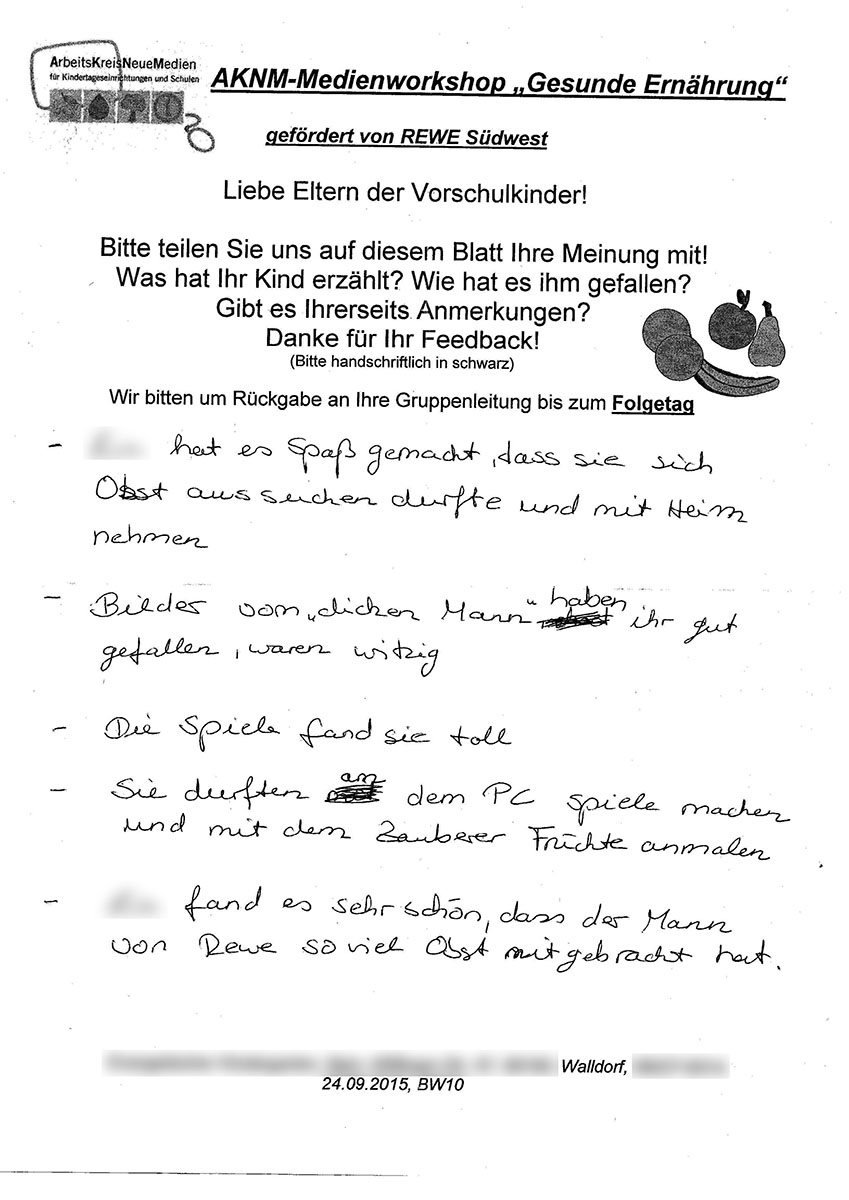 ArbeitsKreisNeueMedien
für Kindertageseinrichtungen und Schulen
AKNM-Medienworkshop „Gesunde Ernährung“
gefördert von REWE Südwest
Liebe Eltern der Vorschulkinder!
Bitte teilen Sie uns auf diesem Blatt Ihre Meinung mit!
Was hat Ihr Kind erzählt? Wie hat es ihm gefallen?
Gibt es Ihrerseits Anmerkungen?
Danke für Ihr Feedback!
(Bitte handschriftlich in schwarz)
Wir bitten um Rückgabe an Ihre Gruppenleitung bis zum Folgetag
- hat es Spaß gemacht, dass sie sich
Obst aussuchen durfte und mit Heim
nehmen
- Bilder vom „dicken Mann“ haben ihr gut
gefallen, waren witzig
- Die Spiele fand sie toll
- Sie durften am dem PC spiele machen
und mit dem Zauberer Früchte anmalen
- fand es sehr schön, dass der Mann
von Rewe so viel Obst mitgebracht hat.
Walldorf,
24.09.2015, BW10